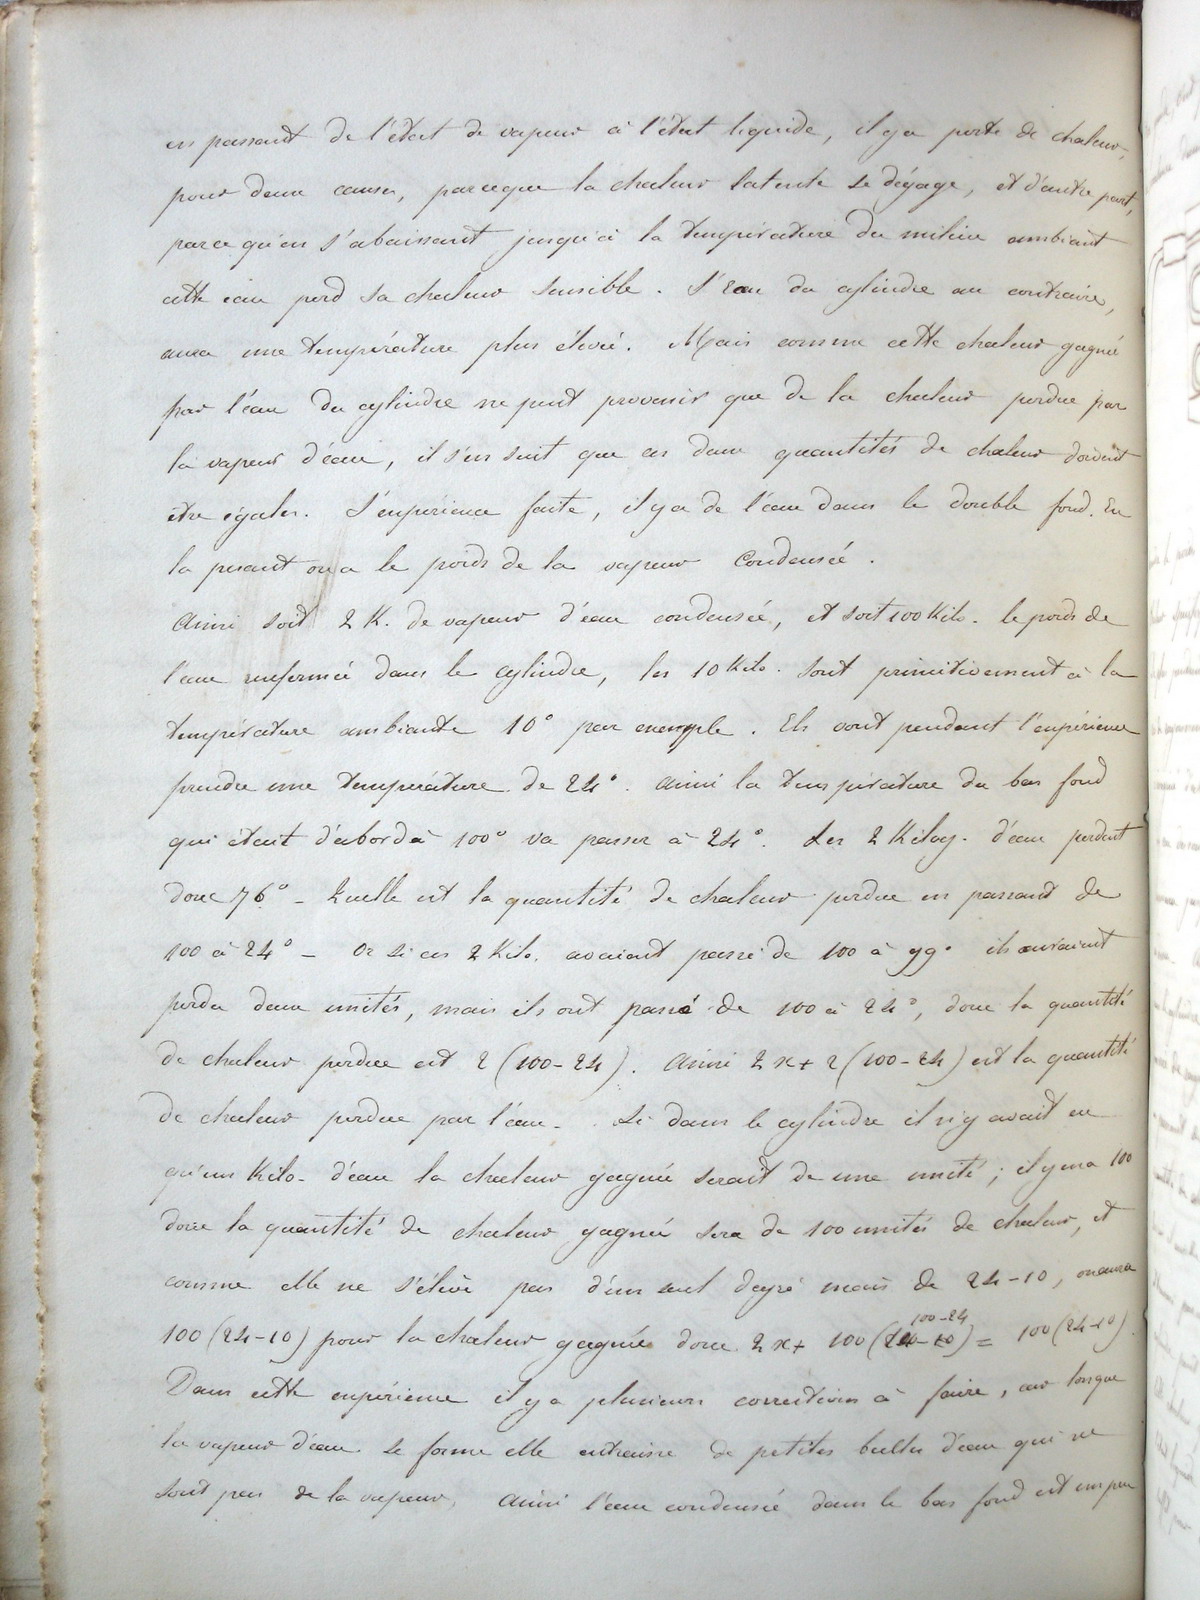 en passant de l'état de vapeur à l'état liquide, il y a perte de chaleur,
pour deux causes, parceque la chaleur latente se dégage, et d'autre part,
parce qu'en s'abaissant jusqu'à la température du milieu ambiant
cette eau perd sa chaleur sensible. L'eau du cylindre au contraire,
aura une température plus élevée. Mais comme cette chaleur gagnée
par l'eau du cylindre ne peut provenir que de la chaleur perdue par
la vapeur d'eau, il s'en suit que ces deux quantités de chaleur doivent
être égales. L'expérience faite, il y a de l'eau dans le double fond. En
la pesant on a le poids de la vapeur Condensée.
Ainsi soit 2 K. de vapeur d'eau condensée, et soit 100 Kilo. le poids de
l'eau renfermée dans le cylindre, les 10 Kilo. sont primitivement à la
température ambiante 10° par exemple. Ils vont pendant l'expérience
prendre une température de 24°. Ainsi la température du bas fond
qui était d'abord à 100° va passer à 24°. Les 2 Kilog. d'eau perdent
donc 76° - Quelle est la quantité de chaleur perdue en passant de
100 à 24° - Or si ces 2 Kilo. avaient passé de 100 à 99° ils auraient
perdu deux unités, mais ils ont passé de 100 à 24°, donc la quantité
de chaleur perdue est 2 (100-24). Ainsi 2x+2(100-24) est la quantité
de chaleur perdue par l'eau. Si dans le cylindre il n'y avait eu
qu'un Kilo. d'eau la chaleur gagnée serait de une unité; il y en a 100
donc la quantité de chaleur gagnée sera de 100 unités de chaleur, et
comme elle ne s'élève pas d'un seul degré mais de 24-10, on aura
100-24
100 (24-10) pour la chaleur gagnée donc 2x+ 100 (24-10) = 100 (24-10).
Dans cette expérience il y a plusieurs corrections à faire, car lorsque
la vapeur d'eau se forme elle entraine de petites bulles d'eau qui ne
sont pas de la vapeur, Ainsi l'eau condensée dans le bas fond est un peu